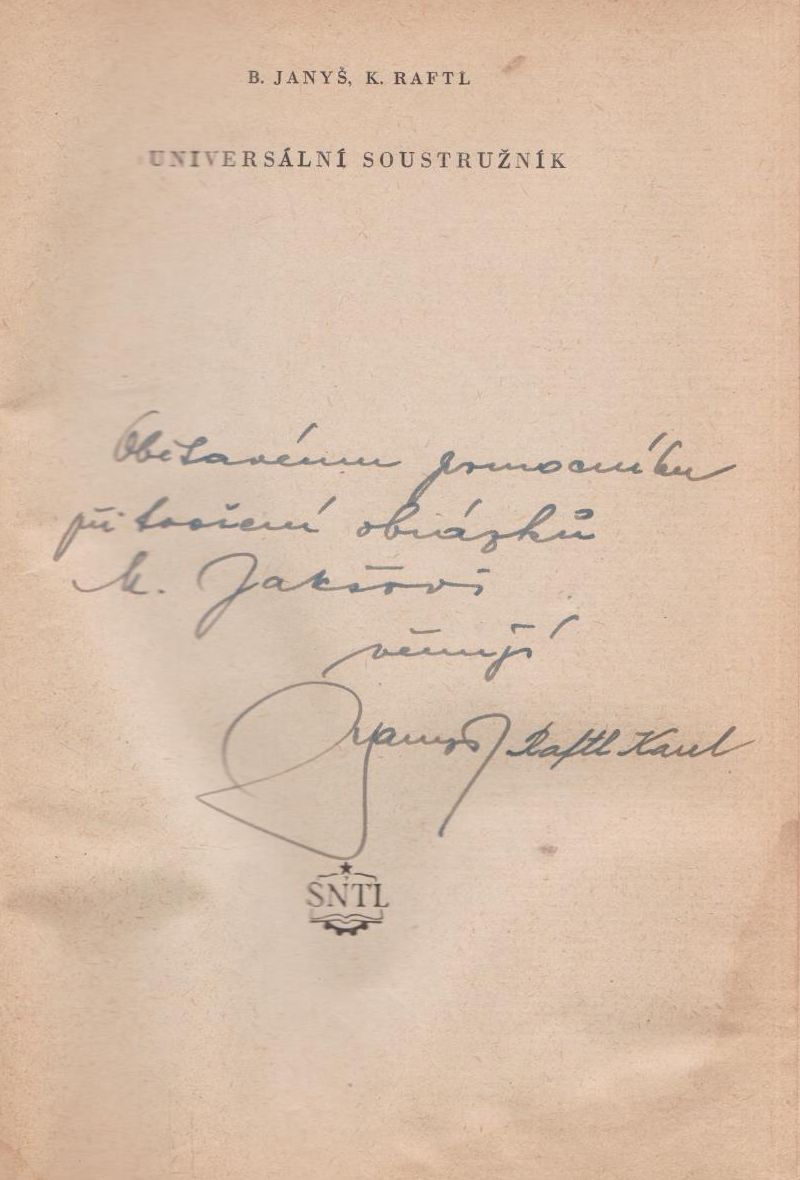 B. JANYŠ, K. RAFTL
UNIVERSÁLNÍ SOUSTRUŽNÍK
Obětavému pomocníku
při tvoření obrázků
M. Jakšovi
věnují
Janyš Raftl Karel
SNTL